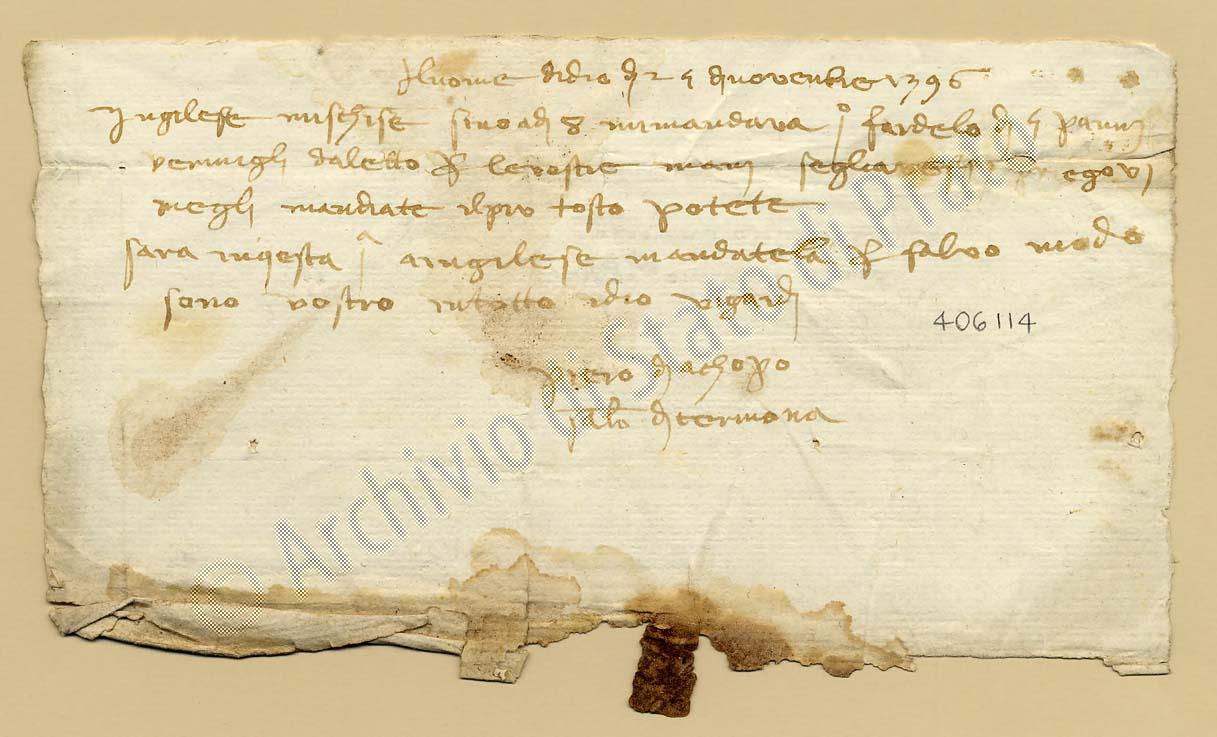 Al nome didio dj 25 dj novenbre 1396
Jngilese mischise sino adj 8 mi mandava j° fardelo dj 5 panni
vermigli daletto per le vostre mani se gli avete priegovi
me gli mandiate il piu tosto potete
sara in questa jª a ingilese mandatela per salvo modo
sono vostro in tutto idio vi guardj
piero dj achopo
dj cermona
406114
© Archivio di Stato di Prato